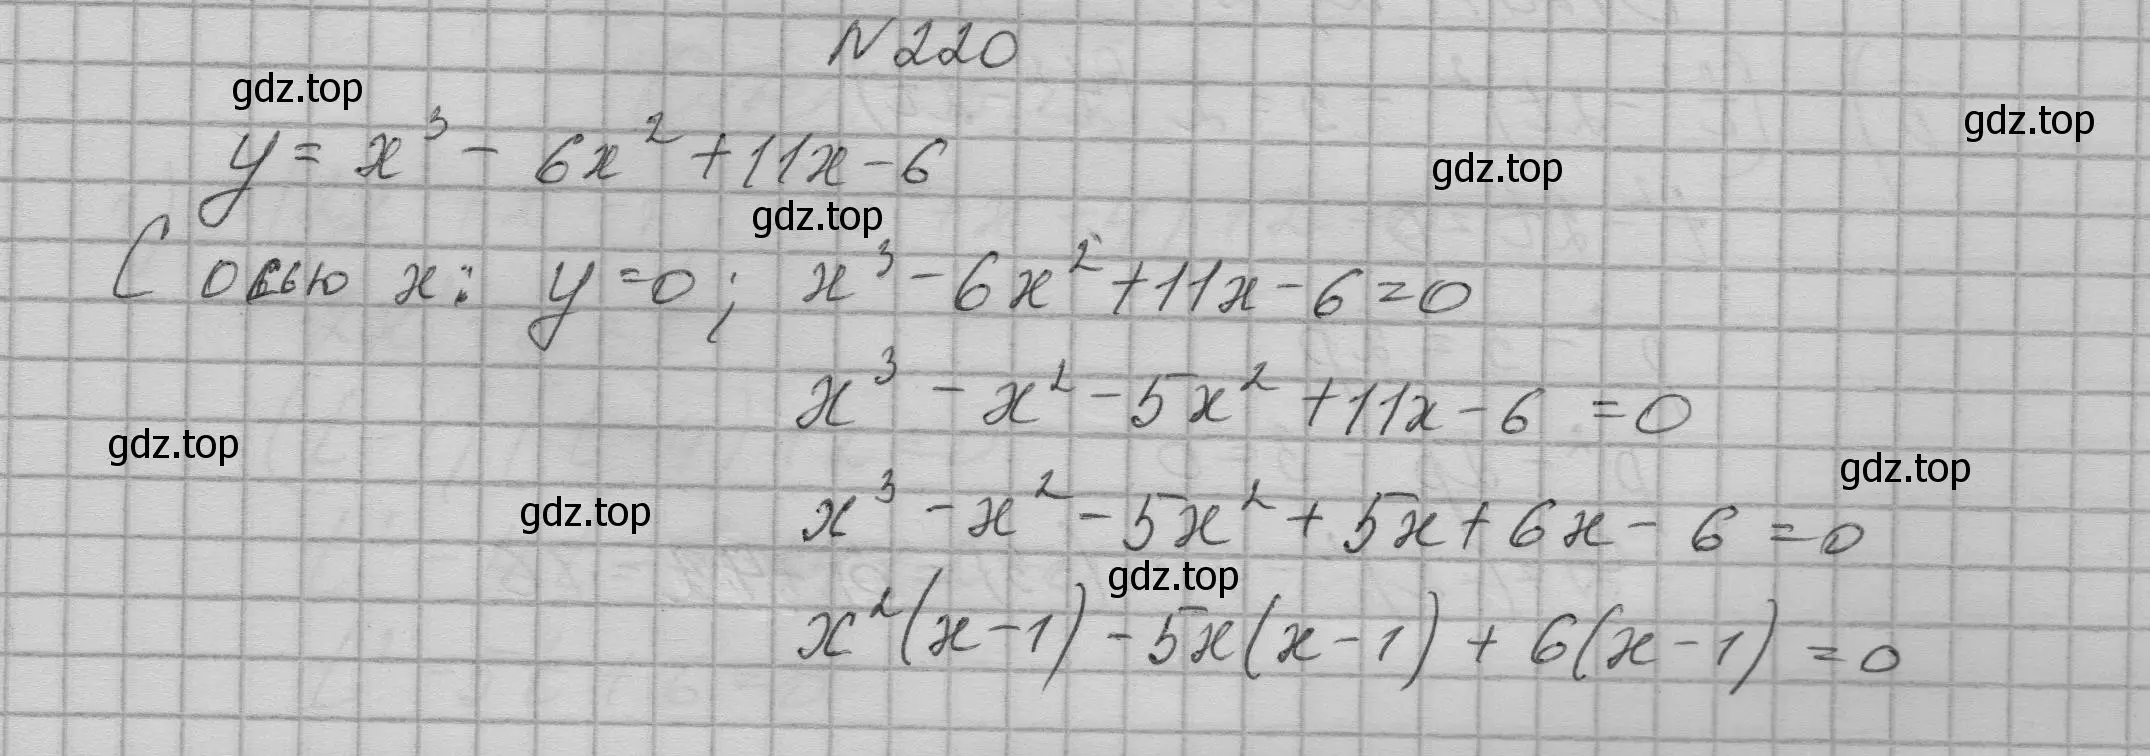 N220
gdz.top
gdz.top
y = x³ - 6x² + 11x - 6
gdz.top
gdz.top
С осью x: y = 0; x³ - 6x² + 11x - 6 = 0
x³ - x² - 5x² + 11x - 6 = 0
gdz.top
gdz.top
gdz.top
x³ - x² - 5x² + 5x + 6x - 6 = 0
gdz.top
x²(x - 1) - 5x(x - 1) + 6(x - 1) = 0